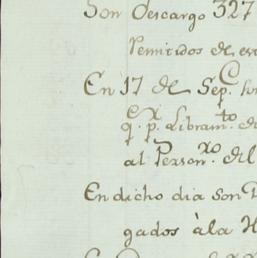 Son descargo 327
Remitidos de
En 17 de Sep.e
q.e p.r Libram.to de
al Person.ro del
En dicho dia son
gados à la